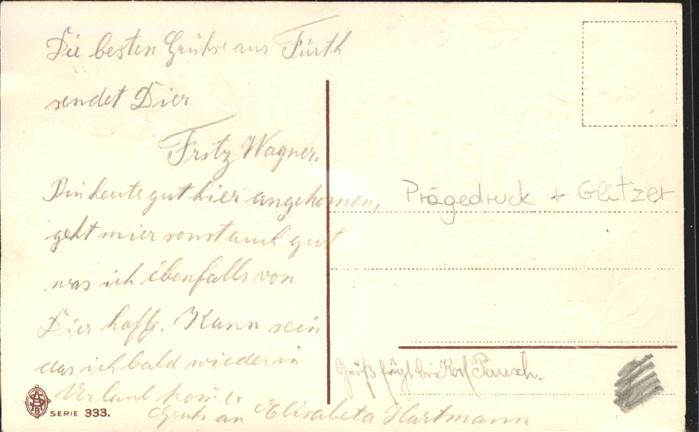 Die besten Grühse aus Fürth
sendet Dier
Fritz Wagner.
Bin heute gut hier angekomen,
geht mier sonst auch gut
was ich ebenfalls von
Dier hoffe. Kann sein
das ich bald wieder in
Urlaub kome.
Gruß an Elisabeta Hartmann
Prägedruck + Glitzer
Gruß fügt bei
SERIE 333.